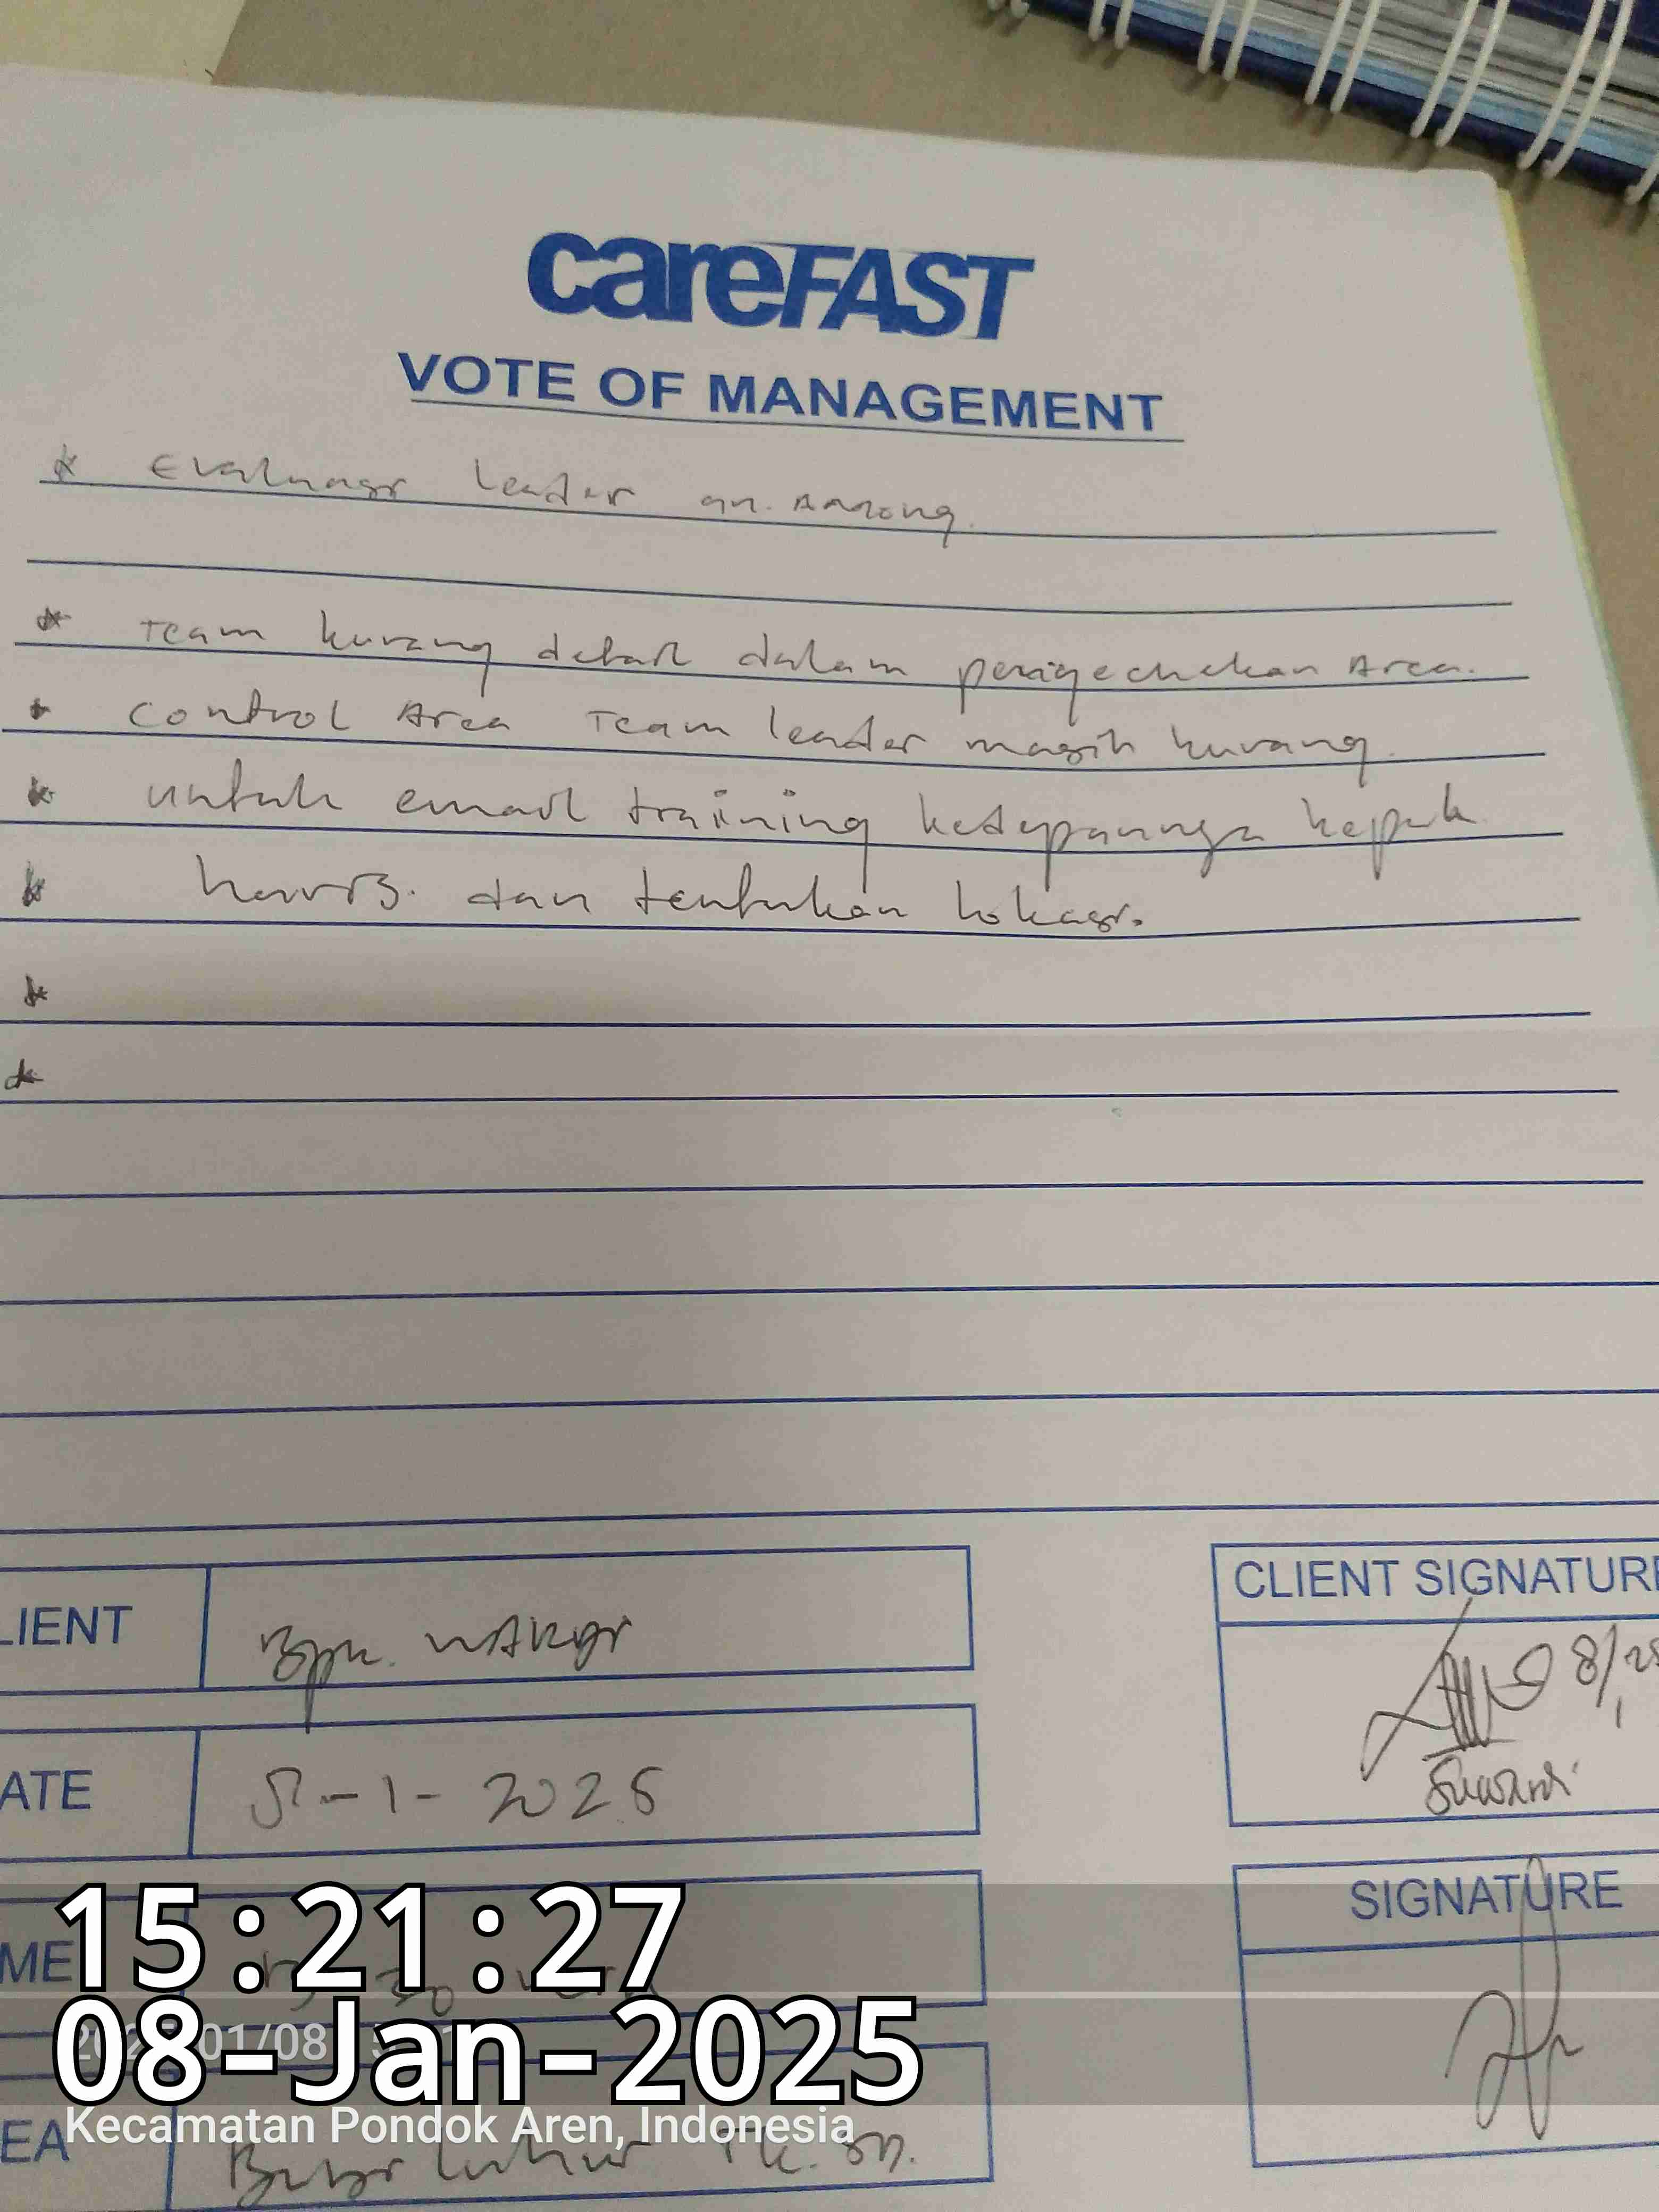 careFAST
VOTE OF MANAGEMENT
* Evaluasi leader an. Among.
* Team kurang detail dalam pengechekan Area.
* Control Area Team leader masih kurang.
* untuk email training kedepannya kepak
* harris. dan tentukan lokasi.
*
*
LIENT Bpk.
CLIENT SIGNATURE
8/1
Suwardi
ATE 8-1-2025
ME
15:21:27
SIGNATURE
08-Jan-2025
Kecamatan Pondok Aren, Indonesia
EA luhur TK. SD.